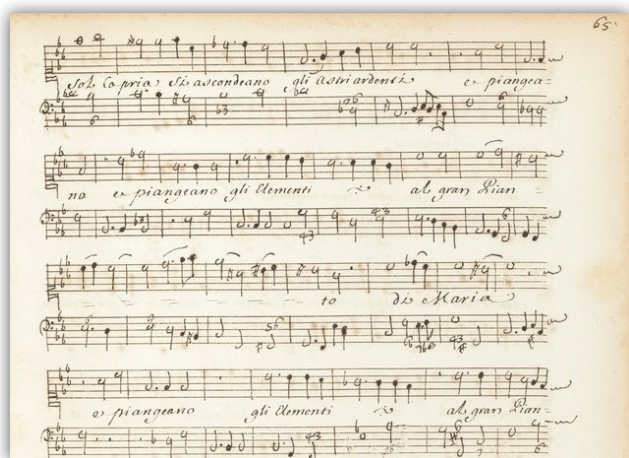 65.
sol Copria si ascondeano gli astri ardenti e piangea-
no e piangeano gli Elementi al gran Pian-
to di Maria
e piangeano gli Elementi al gran Pian-